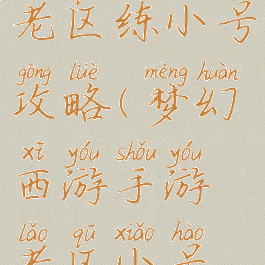 老区练小号
gōng lüè mèng huàn
攻略(梦幻
xī yóu shǒu yóu
西游手游
lǎo qū xiǎo hào
老区小号